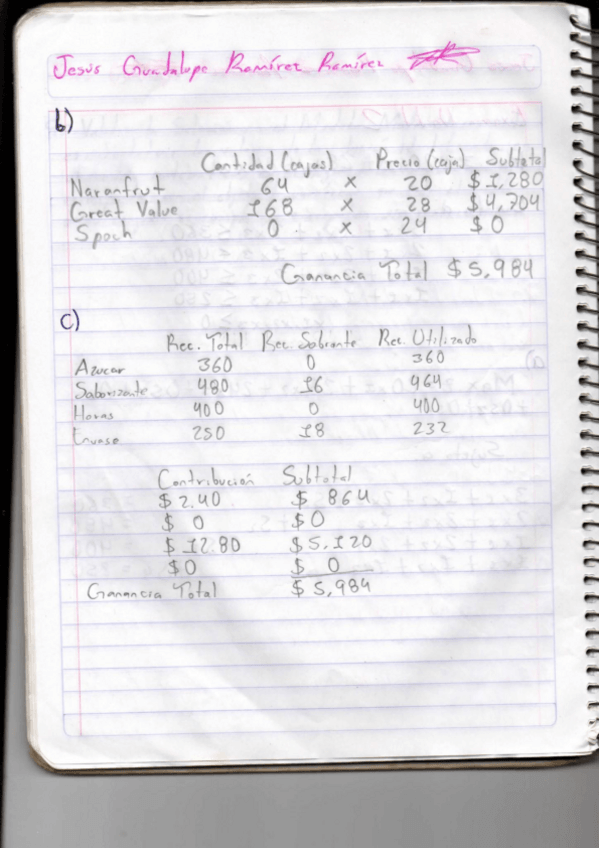 Jesús Guadalupe Ramírez Ramírez
b)
Cantidad (cajas) Precio (caja) Subtotal
Naranfrut 64 x 20 $1,280
Great Value 168 x 28 $4,704
Spoch 0 x 24 $0
Ganancia Total $5,984
c)
Rec. Total Rec. Sobrante Rec. Utilizado
Azucar 360 0 360
Saborizante 480 16 464
Horas 400 0 400
Envase 250 18 232
Contribución Subtotal
$2.40 $864
$0 $0
$12.80 $5,120
$0 $0
Ganancia Total $5,984